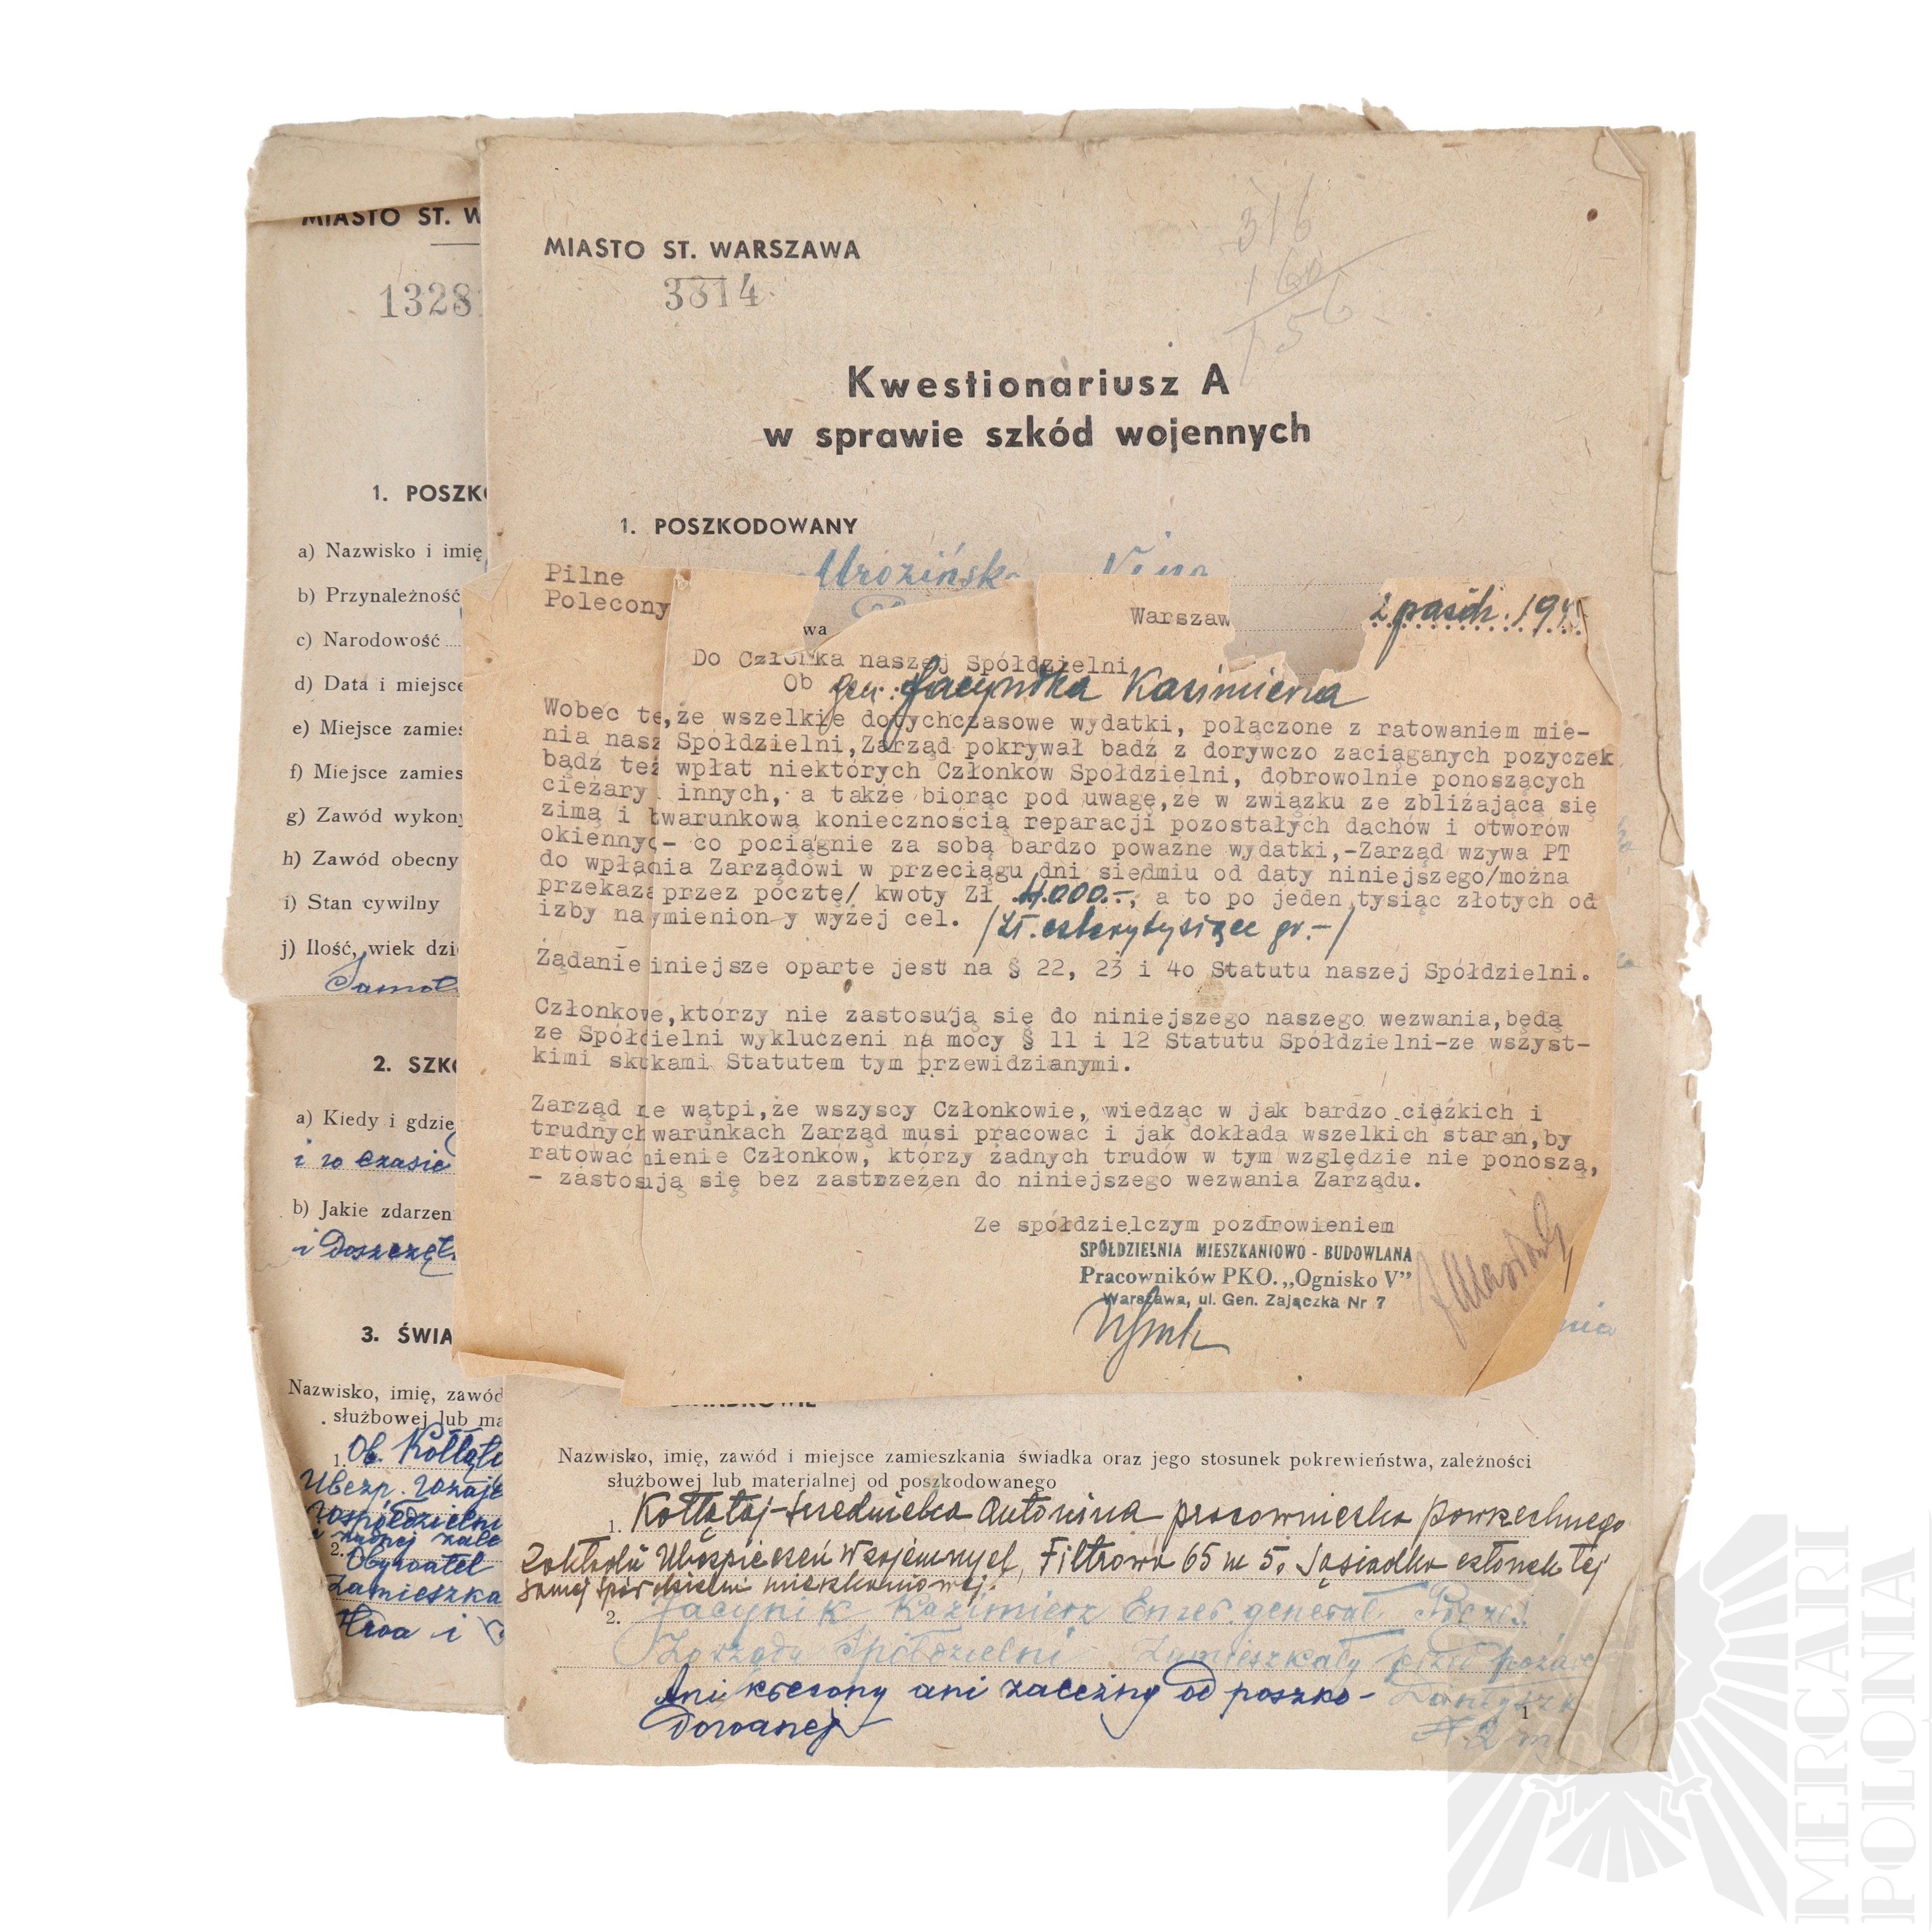 MIASTO ST. W
1328
1. POSZK
a) Nazwisko i imię
b) Przynależność
c) Narodowość
d) Data i miejsce
e) Miejsce zamies
f) Miejsce zamies
g) Zawód wykony
h) Zawód obecny
i) Stan cywilny
j) Ilość, wiek dzi
Samot
2. SZK
a) Kiedy i gdzie
i w czasie
b) Jakie zdarzen
i doszczęt
3. ŚWIA
Nazwisko, imię, zawód
służbowej lub ma
1. Ob. Kołłąta
Ubezp. Wzaje
współdzielni
2. Obywatel
Zamieszka
MIASTO ST. WARSZAWA
3814
316
160
156
Kwestionariusz A
w sprawie szkód wojennych
1. POSZKODOWANY
Mrozińsk
Pilne
Polecony
wa
Warszaw 2 paźdz. 194
Do Członka naszej Spółdzielni
Ob gen. Jacynika Kazimierza
Wobec te,że wszelkie dotychczasowe wydatki, połączone z ratowaniem mie-
nia nasz Spółdzielni,Zarząd pokrywał badź z dorywczo zaciąganych pozyczek
bądź też wpłat niektórych Członków Spółdzielni, dobrowolnie ponoszących
ciężary innych, a także biorąc pod uwagę,że w związku ze zbliżającą się
zimą i warunkową koniecznością reparacji pozostałych dachów i otworów
okiennyc- co pociągnie za sobą bardzo poważne wydatki,-Zarząd wzywa PT
do wpłania Zarządowi w przeciągu dni siedmiu od daty niniejszego/można
przekaza przez pocztę/ kwoty Zł 4.000.-, a to po jeden tysiąc złotych od
izby na ymienion y wyżej cel. /Zł. czterytysiące gr.-/
Żądanie iniejsze oparte jest na § 22, 23 i 4o Statutu naszej Spółdzielni.
Członkowe,którzy nie zastosują się do niniejszego naszego wezwania,będą
ze Spółdielni wykluczeni na mocy § 11 i 12 Statutu Spółdzielni-ze wszyst-
kimi skukami Statutem tym przewidzianymi.
Zarząd ne wątpi,że wszyscy Członkowie, wiedząc w jak bardzo ciężkich i
trudnych warunkach Zarząd musi pracować i jak dokłada wszelkich starań,by
ratować mienie Członków, którzy żadnych trudów w tym względzie nie ponoszą,
- zastosują się bez zastrzeżeń do niniejszego wezwania Zarządu.
Ze spółdzielczym pozdrowieniem
SPÓŁDZIELNIA MIESZKANIOWO - BUDOWLANA
Pracowników PKO. „Ognisko V”
Warszawa, ul. Gen. Zajączka Nr 7
Nazwisko, imię, zawód i miejsce zamieszkania świadka oraz jego stosunek pokrewieństwa, zależności
służbowej lub materialnej od poszkodowanego
1. Kołłątaj-Srednicka Antonina pracowniczka Powszechnego
Zakładu Ubezpieczeń Wzajemnych, Filtrowa 65 m 5. Sąsiadka członek tej
samej spółdzielni mieszkaniowej.
2. Jacynik Kazimierz Emer. generał Prezes
Zarządu Spółdzielni Zamieszkały
Ani krewny ani zależny od poszko-
dowanej
1
MERCARI
POLONIA